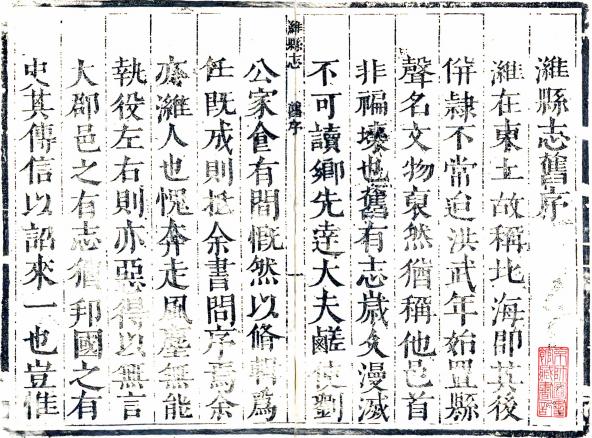 濰縣志舊序
濰在東土故稱北海郡其後
併隸不常迨洪武年始置縣
聲名文物裒然猶稱他邑首
非褊壤也舊有志歲久漫滅
不可讀鄉先達大夫鹺使劉
濰縣志
舊序
一
公家食有間慨然以修輯爲
任既成則抵余書問序焉余
亦濰人也愧奔走風塵無能
執役左右則亦惡得以無言
大郡邑之有志猶邦國之有
史其傳信以詔來一也豈惟